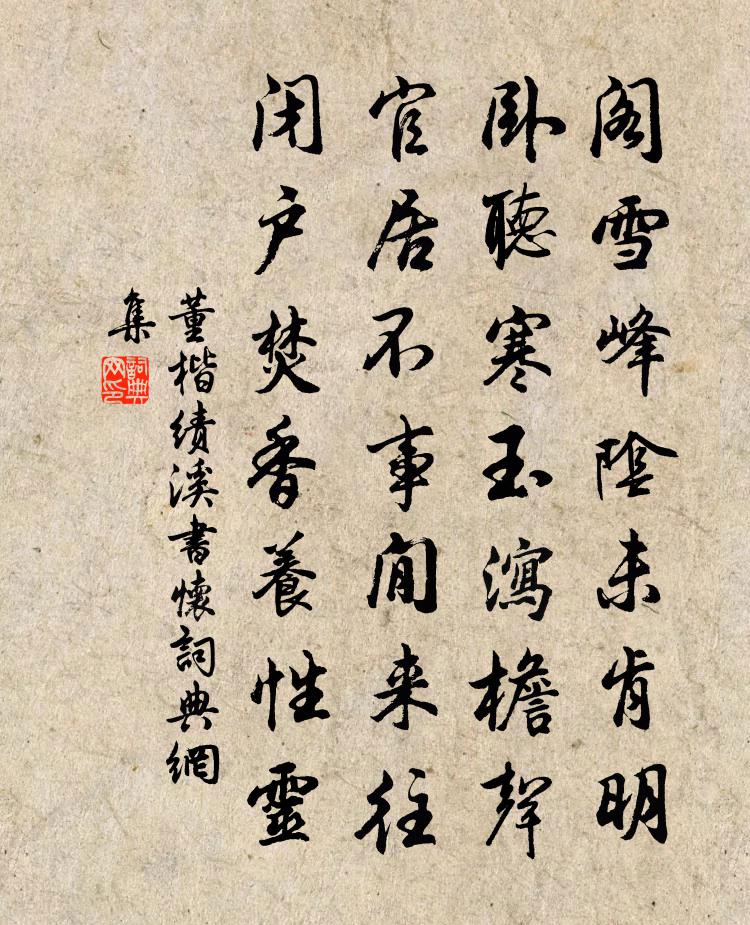 阁雪峰陰未肯明
卧聽寒玉瀉檐聲
官居不事閒来往
闭户焚香養性靈
董楷績溪書懷詞典網
集
詞典网印